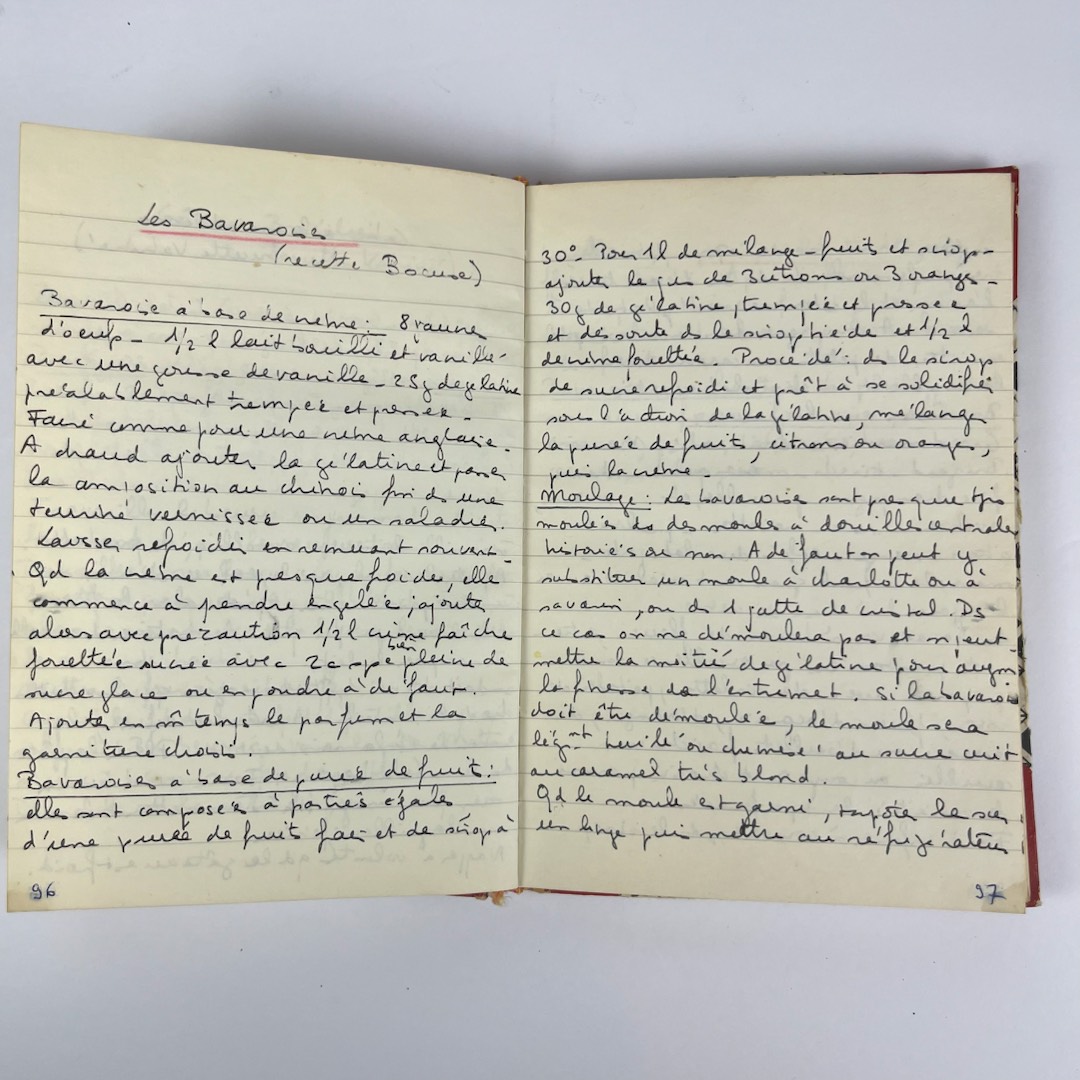 Les Bavaroises
(recette Bocuse)
Bavaroise à base de crème : 8 jaunes
d'oeufs - 1/2 l lait bouilli et vanillé
avec une gousse de vanille - 25g de gelatine
préalablement trempée et pressée -
Faire comme pour une crème anglaise.
A chaud ajouter la gélatine et passer
la composition au chinois fin ds une
terrine vernissée ou un saladier.
Laisser refroidir en remuant souvent
Qd la crème est presque froide, elle
commence à prendre en gelée ; ajouter
alors avec précaution 1/2 l crème fraîche
fouettée sucrée avec 2 c à spe bien pleine de
sucre glace ou en poudre à défaut.
Ajouter en m̂ temps le parfum et la
garniture choisi.
Bavaroises à base de purée de fruits :
elles sont composées à parties égales
d'une purée de fruits frais et de sirop à
96
30° - Pour 1l de mélange - fruits et sirop -
ajouter le jus de 3 citrons ou 3 oranges -
30g de gélatine, trempée et pressée
et dissoute ds le sirop tiède et 1/2 l
de crème fouettée. Procédé : ds le sirop
de sucre refroidi et prêt à se solidifier
sous l'action de la gélatine, mélanger
la purée de fruits, citrons ou oranges,
puis la crème.
Moulage : Les bavaroises sont presque tjs
moulées ds des moules à douilles centrales
historiés ou non. A défaut on peut y
substituer un moule à charlotte ou à
savarin, ou ds 1 jatte de cristal. Ds
ce cas on ne démoulera pas et on peut
mettre la moitié de gélatine pour augm
la finesse de l'entremet. Si la bavaroise
doit être démoulée, le moule sera
légmt huilé ou chemisé au sucre cuit
au caramel très blond.
Qd le moule est garni, tapoter le sur
un linge puis mettre au réfrigérateur
97